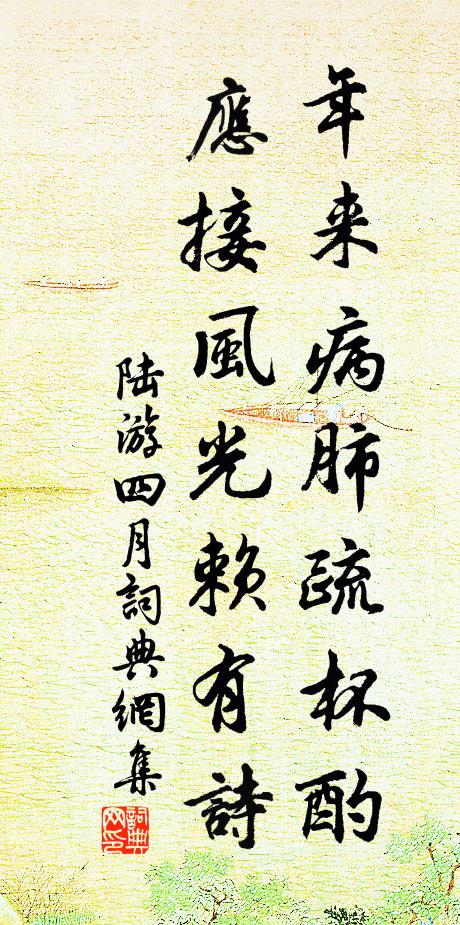 年来病肺疏杯酌
應接風光賴有詩
陆游四月詞典網集
詞典網印